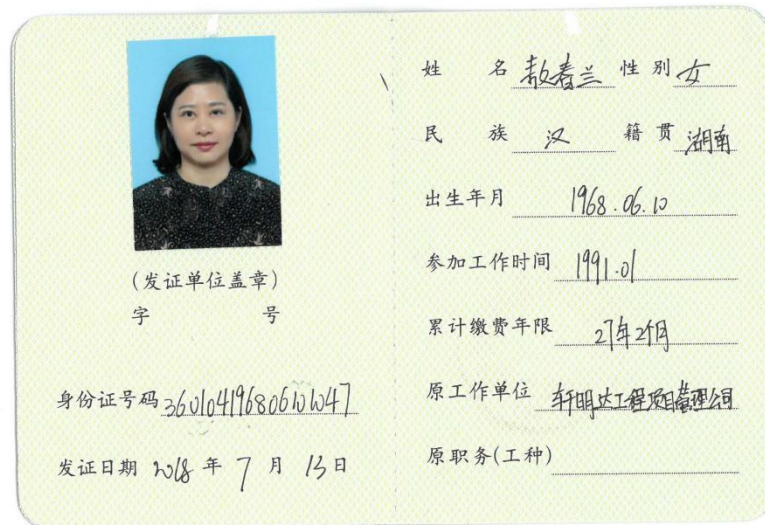 (发证单位盖章)
字 号
身份证号码 360104196806101047
发证日期 2018 年 7 月 13 日
姓 名 敖春兰 性别 女
民 族 汉 籍贯 湖南
出生年月 1968.06.10
参加工作时间 1991.01
累计缴费年限 27年2个月
原工作单位 轩明达工程项目管理公司
原职务(工种)